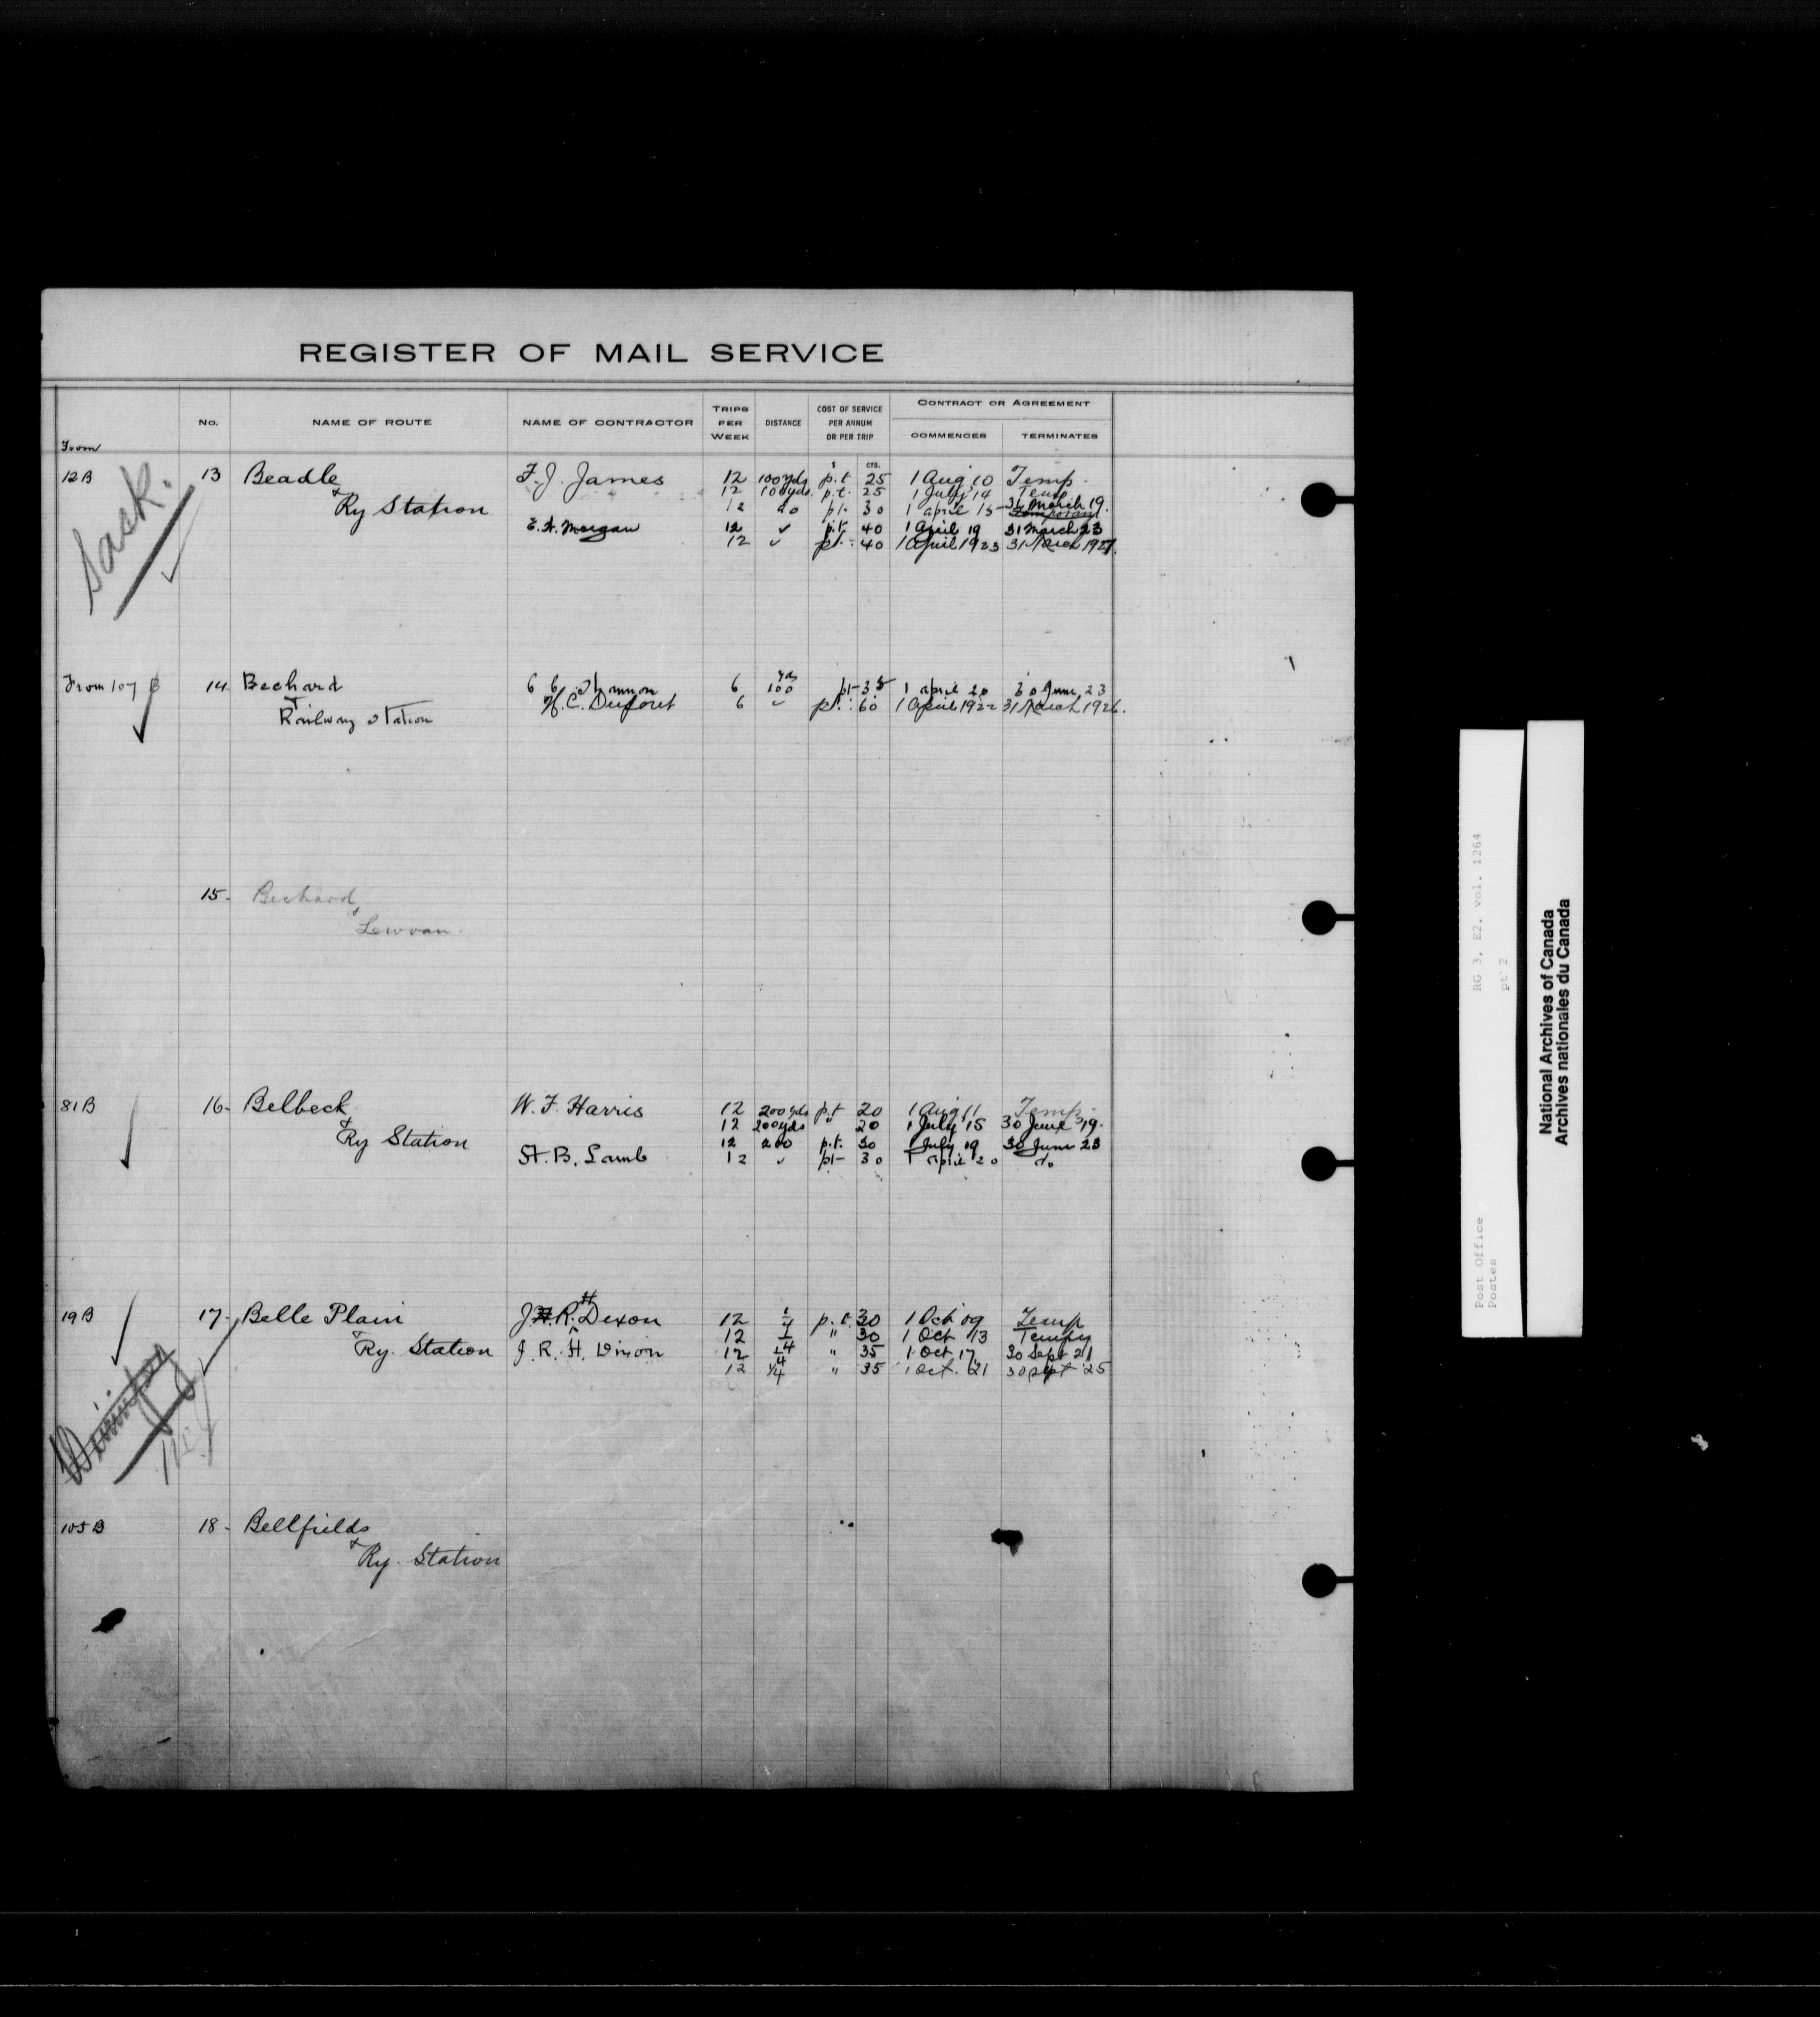 REGISTER OF MAIL SERVICE
From No. NAME OF ROUTE NAME OF CONTRACTOR TRIPS PER WEEK DISTANCE COST OF SERVICE PER ANNUM OR PER TRIP CONTRACT OR AGREEMENT COMMENCES TERMINATES
$ CTS.
12 B 13 Beadle F. J. James 12 100 yds p.t 25 1 Aug 10 Temp.
12 100 yds p.t. 25 1 July 14 Temp
& Ry Station 12 do pt. 30 1 april 15 31 March 19.
Temporary
E. H. Morgan 12 ✓ p.t. 40 1 April 19 31 March 23
12 ✓ pt. 40 1 April 1923 31 March 1927.
Sack.
From 107 B 14 Bechard 6 100 yds pt 35 1 april 20 30 June 23
& Railway Station H. C. Duforet 6 ✓ pt. 60 1 April 1922 31 March 1926.
15. Bechard
& Lewvan.
81 B 16. Belbeck W. F. Harris 12 200 yds p.t 20 1 Aug 11 Temp.
12 200 yds " 20 1 July 15 30 June 19.
& Ry Station 12 200 p.t. 30 1 July 19 30 June 23
St. B. Lamb 12 ✓ pt 30 1 april 20 do
19 B 17. Belle Plain J. H. R. H Dixon 12 1/4 p.t. 30 1 Oct 09 Temp
12 1/4 " 30 1 Oct 13 Tempy
& Ry. Station J. R. H. Dixon 12 1/4 " 35 1 Oct 17 30 Sept 21
12 1/4 " 35 1 Oct. 21 30 Sept 25
105 B 18. Bellfields
& Ry. Station
RG 3, E2, vol. 1264
pt 2
Post Office
Postes
National Archives of Canada
Archives nationales du Canada